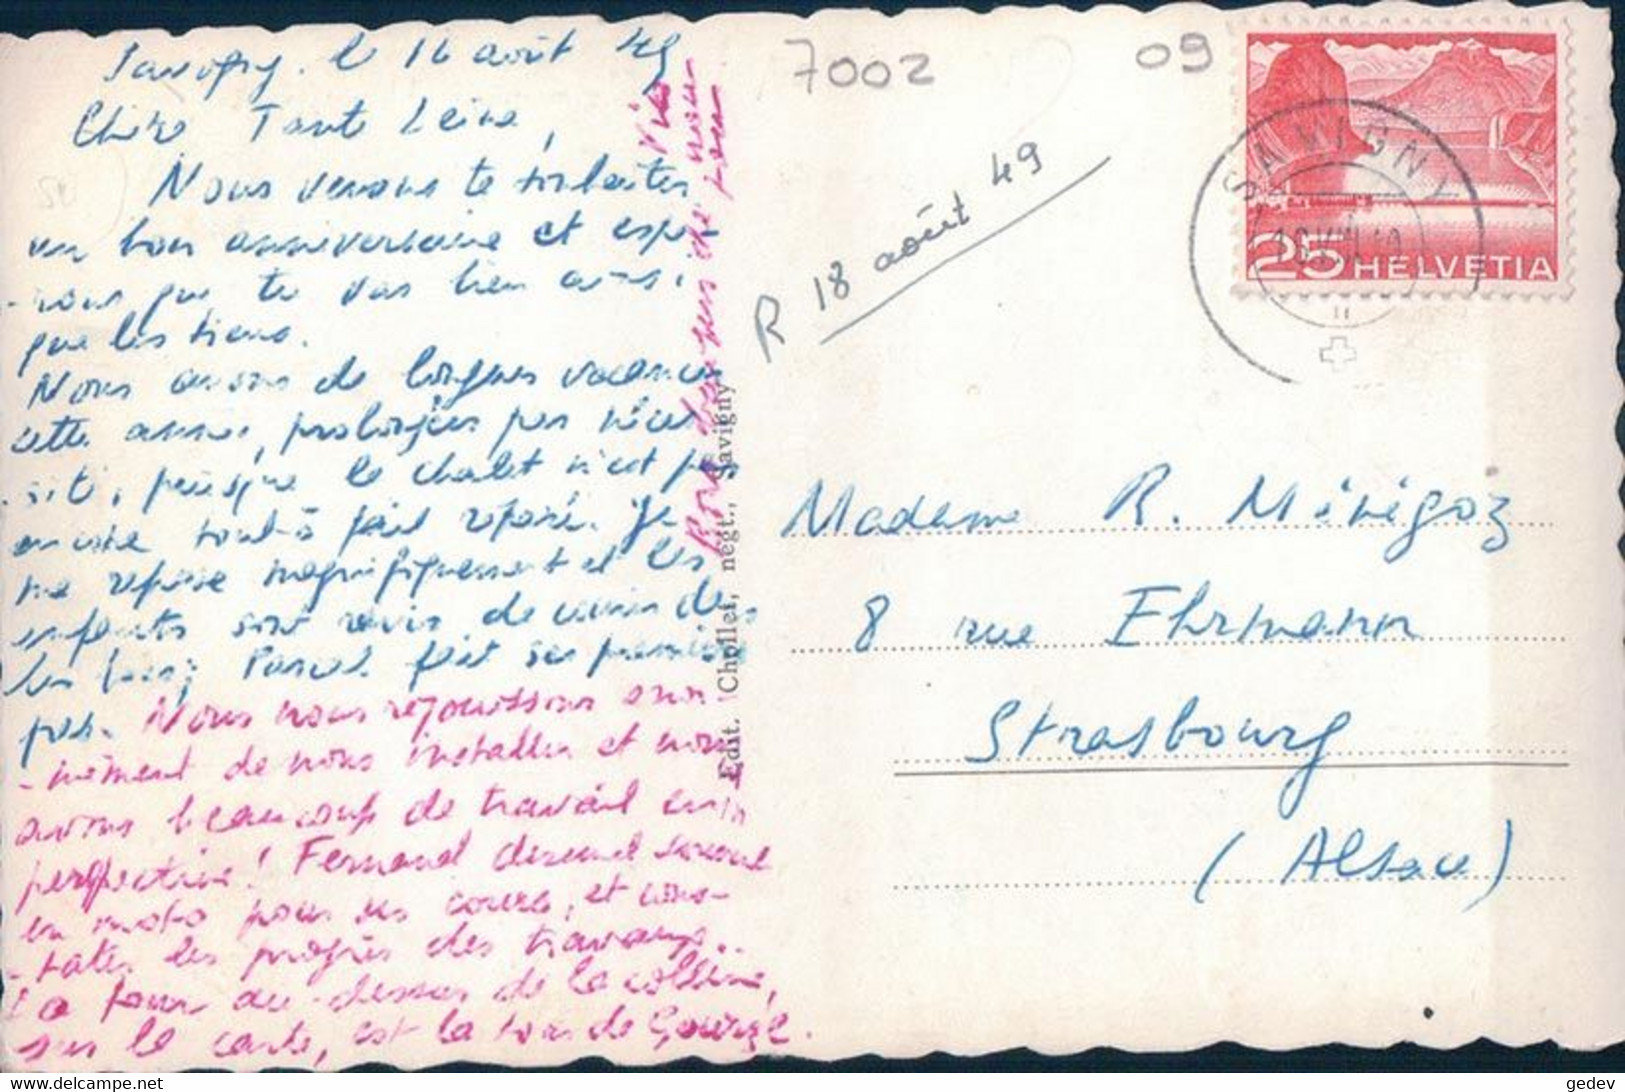 Savigny, le 16 août 49
Chère Tante Leine,
Nous venons te souhaiter
un bon anniversaire et espé-
-rons que tu vas bien ainsi
que les tiens.
Nous avons de longues vacances
cette année, prolongées par néces-
sité, puisque le chalet n'est pas
encore tout-à fait réparé. Je
me repose magnifiquement et les
enfants sont ravis de courir dans
les bois; Pascal fait ses premiers
pas. Nous nous réjouissons énor-
-mément de nous installer et nous
avons beaucoup de travail en
perspective! Fernand descend souvent
en moto pour ses cours, et cons-
-tater les progrès des travaux..
La tour au-dessus de la colline,
sur la carte, est la tour de Gourze.
Bons baisers de nous
tous
Edit. Chollet, négt., Savigny
7002
09
R 18 août 49
SAVIGNY
25 HELVETIA
Madame R. Ménégoz
8 rue Ehrmann
Strasbourg
(Alsace)
gedev